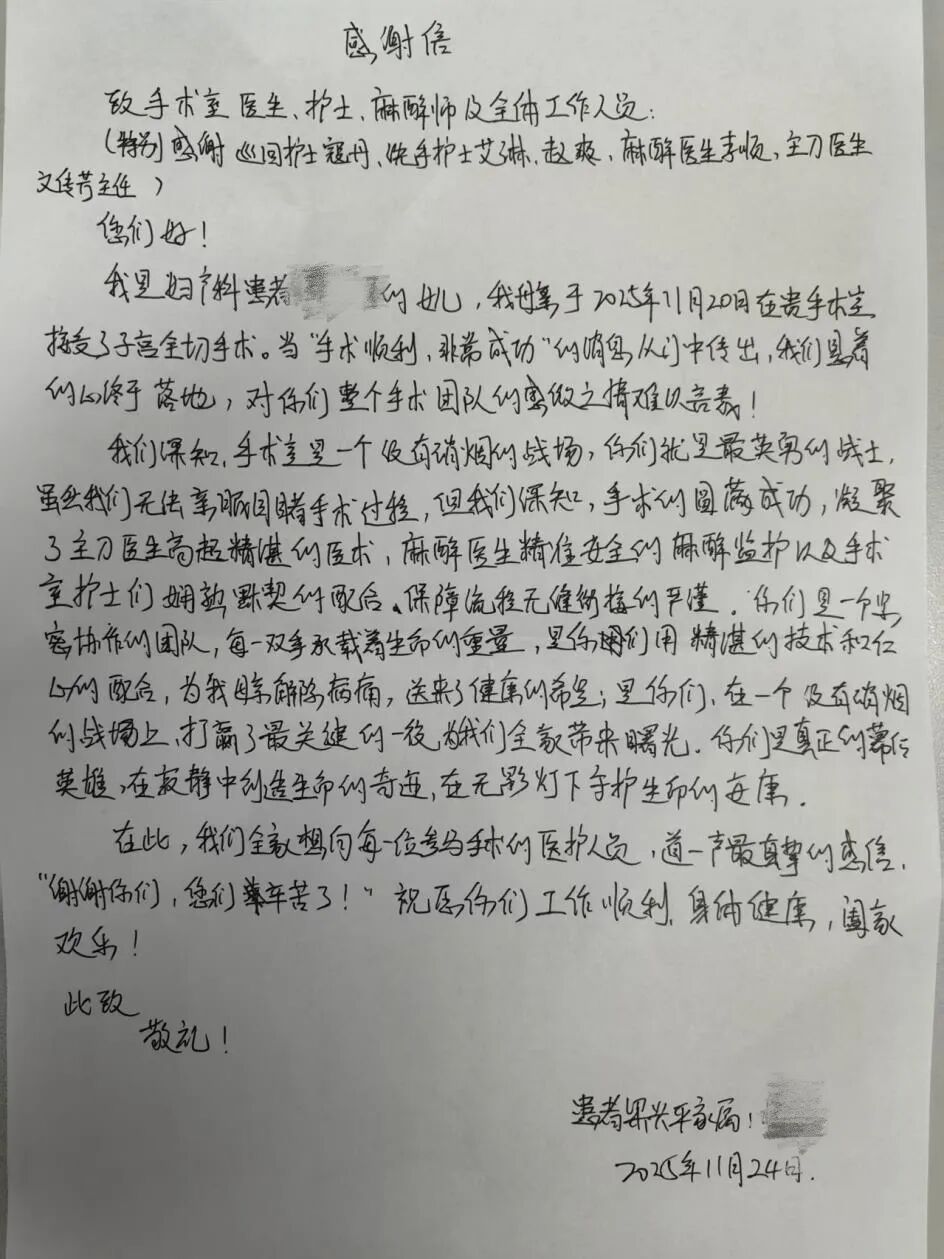 感谢信
致手术室医生、护士、麻醉师及全体工作人员:
(特别感谢巡回护士寇丹、洗手护士艾琳、赵爽、麻醉医生李顺,主刀医生
文传芳主任)
您们好!
我是妇产科患者的女儿,我母亲于2025年11月20日在贵手术室
接受了子宫全切手术。当"手术顺利,非常成功"的消息从门中传出,我们悬着
的心终于落地,对你们整个手术团队的感激之情难以言表!
我们深知,手术室是一个没有硝烟的战场,你们就是最英勇的战士,
虽然我们无法亲眼目睹手术过程,但我们深知,手术的圆满成功,凝聚
了主刀医生高超精湛的医术,麻醉医生精准安全的麻醉监护以及手术
室护士们娴熟默契的配合、保障流程无缝衔接的严谨。你们是一个紧
密协作的团队,每一双手承载着生命的重量,是你们用精湛的技术和仁
心的配合,为我母亲解除病痛,送来了健康的希望;是你们,在一个没有硝烟
的战场上,打赢了最关键的一役,为我们全家带来曙光。你们是真正的幕后
英雄,在寂静中创造生命的奇迹,在无影灯下守护生命的安康。
在此,我们全家想向每一位参与手术的医护人员,道一声最真挚的感信,
"谢谢你们,您们辛苦了!"祝愿你们工作顺利,身体健康,阖家
欢乐!
此致
敬礼!
患者兴平家属:
2025年11月24日.